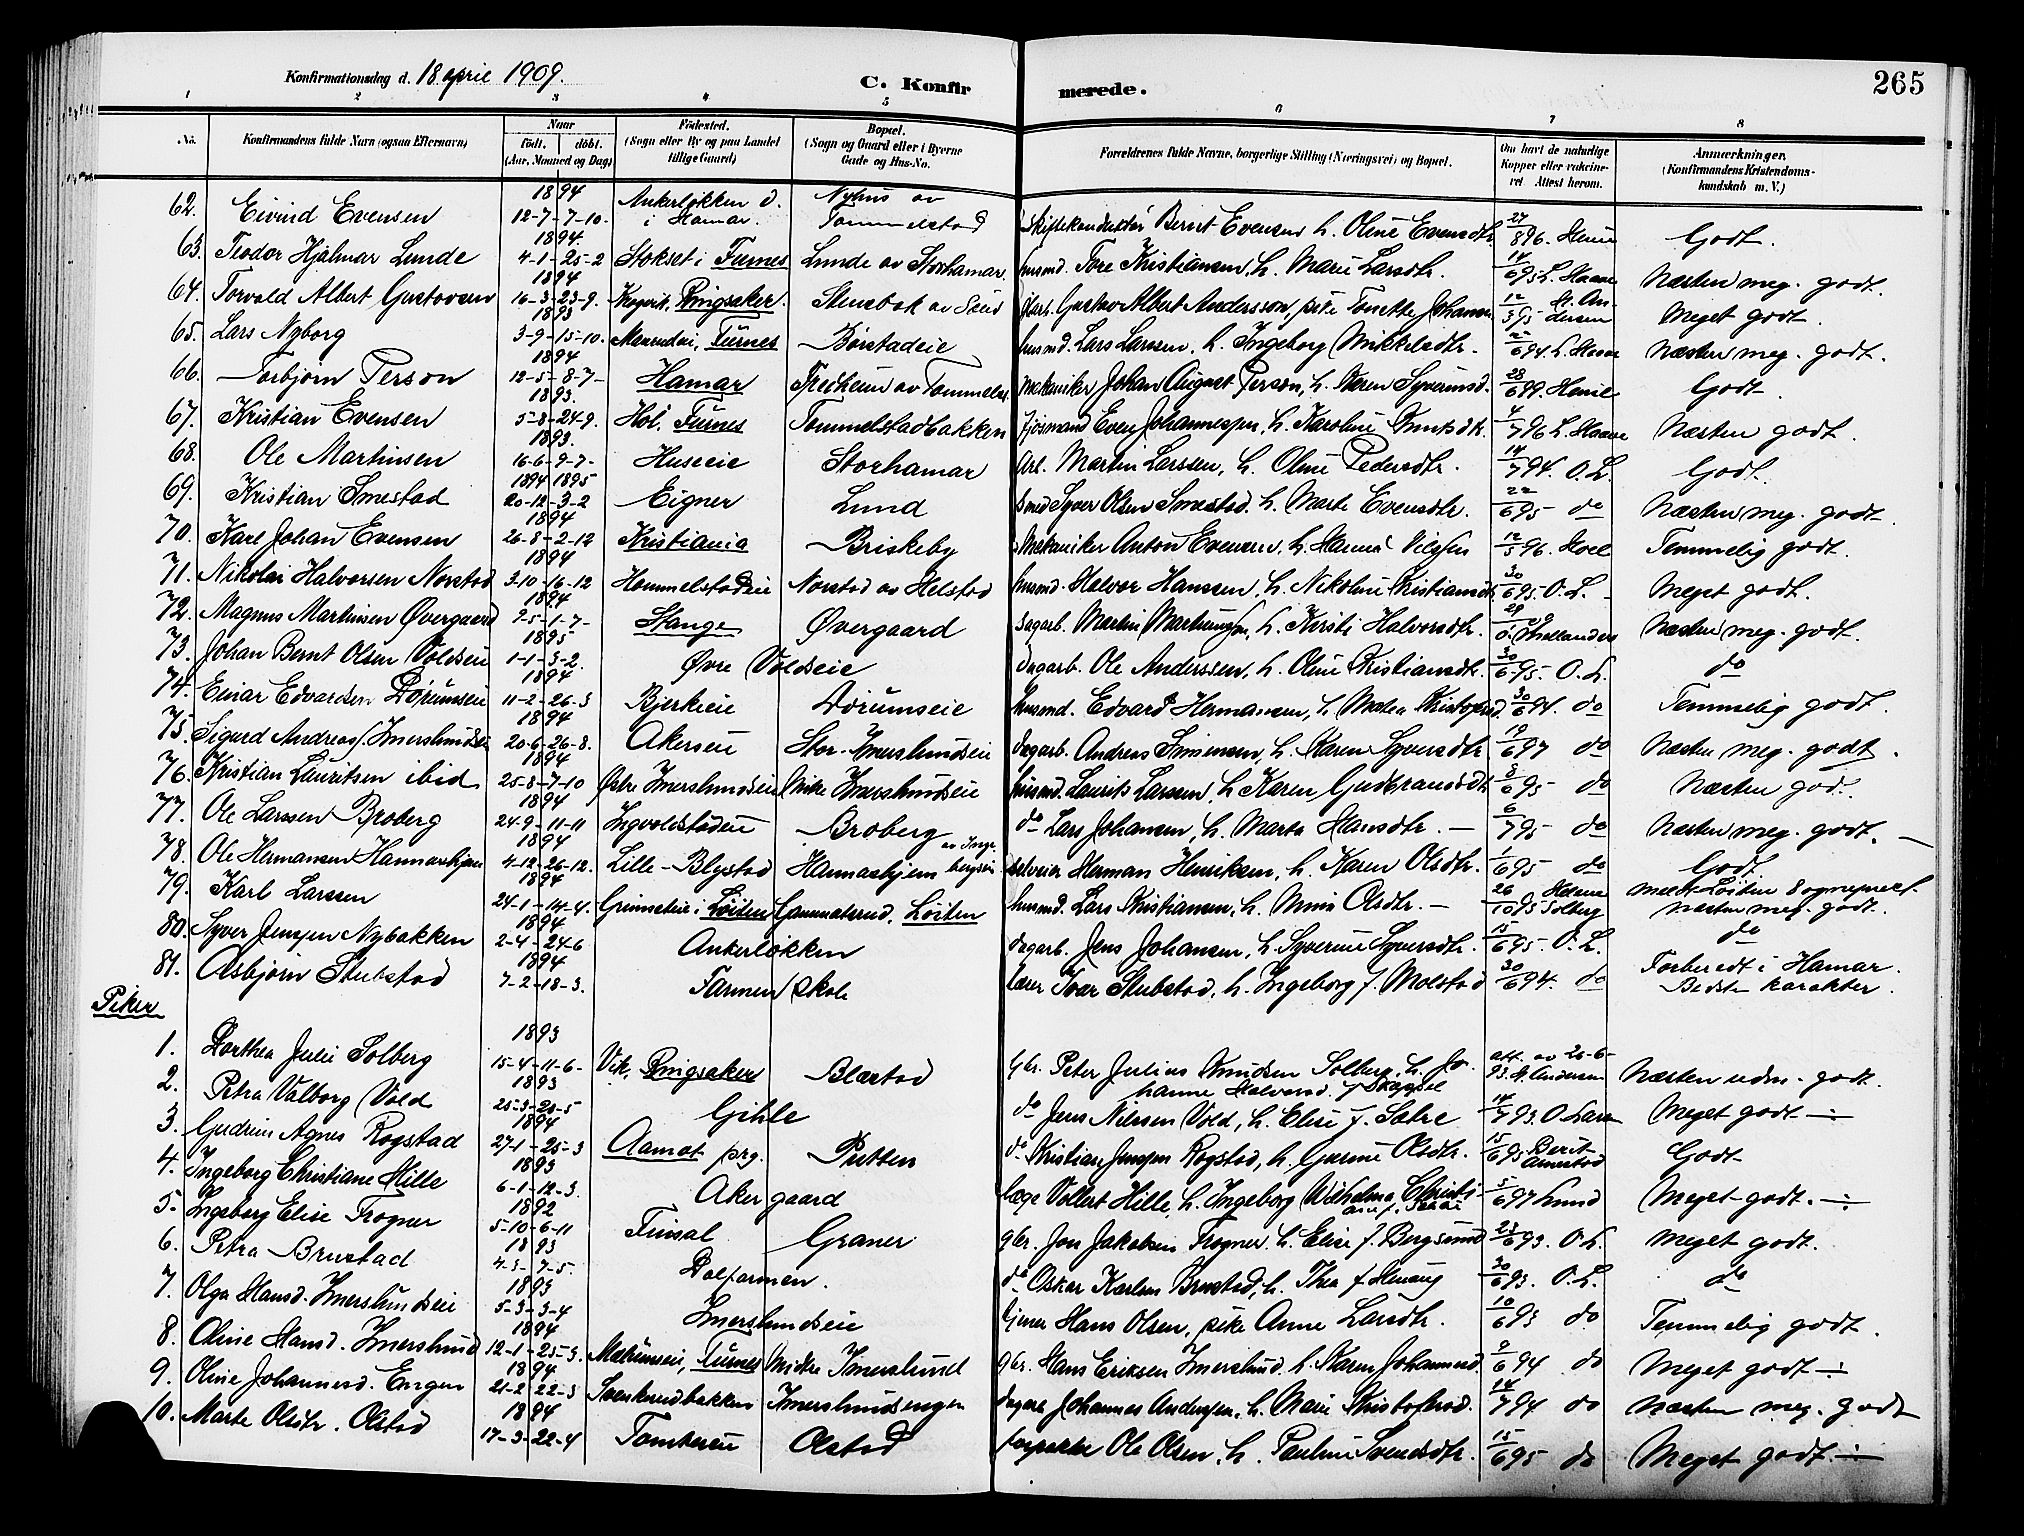 Konfirmationsdag d. 18 april 1909.
C. Konfirmerede.
265
1 2 3 4 5 6 7 8
No. Konfirmandens fulde Navn (ogsaa Efternavn) Naar Født. døbt. (Aar, Maaned og Dag) Fødested. (Sogn eller By og paa Landet tillige Gaard) Bopæl. (Sogn og Gaard eller i Byerne Gade og Hus-No. Forældrenes fulde Navne, borgerlige Stilling (Næringsvei) og Bopæl. Om havt de naturlige Kopper eller vakcineret Attest herom. Anmærkninger. (Konfirmandens Kristendomskundskab m. V.)
62. Eivind Evensen 1894 12-7-7-10. Ankerløkken i Hamar. Nyhus av Tommelstad Skiftekonduktør Bernt Evensen h. Oline Evensdtr 27/8 96. Godt.
63. Teodor Hjalmar Lunde 1894. 4-1-25-2 Stokset i Furnes Lunde av Storhamar. husmd. Tore Kristiansen, h. Marie Larsdtr. 14/6 95 L. Haave Næsten meg. godt.
64. Torvald Albert Gustavsen 1894 16-3-23-9. Ringsaker. Stensbak av Gustav Albert Andersson, pike Tonette Johansen 12/3 95 Andersen Meget godt.
65. Lars Nyborg 1893 3-9-15-10. Furnes Børstadeie husmd. Lars Larssen, h. Ingeborg Mikkelsdtr. 2/6 94 L. Haave Næsten meg. godt.
66. Torbjørn Person 1894 12-5-8-7- Hamar Fredheim av Tommelst. mekaniker Johan August Person, h. Karen Syverinsd. 28/6 99. Godt
67. Kristian Evensen 1893. 5-8-24-9. Hol. Furnes Tommelstadbakken Fjøsmand Even Johannessen, h. Karoline Knutsdtr. 4/7 96 L. Haave Næsten godt.
68. Ole Martinsen 1893. 16-6-9-7- Huseeie Storhamar Arb. Martin Larssen, h. Oline Pedersdtr. 14/7 94. O. L. Godt.
69. Kristian Smestad 1894 1895 20-12-3-2 Eigner Lund Smed Syver Olsen Smestad. h. Marte Evensdtr. 22/6 95 do Næsten meg. godt
70. Karl Johan Evensen 1894 26-8-2-12 Kristiania Briskeby Mekaniker Anton Evensen, h. Hanna Nilssen 12/5 96. Hoel Temmelig godt.
71. Nikolai Halvorsen Norstad 1894 3-10-16-12 Hommelstadeie Norstad av Helstad husmd. Halvor Hanssen, h. Nikoline Kristiansdtr. 30/6 95. O. L. - Meget godt.
72. Magnus Martinsen Øvergaard 1894 7-5-1-7- Stange Øvergaard Dagarb. Martin Martinsen, h. Kirsti Halvorsdtr. Næsten meg. godt
73. Johan Bernt Olsen Voldseie 1895 1-1-3-2. Øvre Voldseie dagarb. Ole Anderssen, h. Oline Kristiansdtr. 30/6 95. O. L. do
74. Einar Edvardsen Dørumseie 1894 11-2-26-3 Bjerkeeie Dørumseie husmd. Edvard Hermansen, h. Matea Kristofersd. 30/6 94. do Temmelig godt.
75. Sigurd Andreas Imerslundseie 1894 20-6-26-8. Akerseie Stor-Imerslundseie dagarb. Andreas Simensen, h. Karen Syversdtr 19/6 97 do Næsten meg. godt.
76. Kristian Lauritsen ibid 1894 25-8-7-10 Østre Imerslundseie Midtre Imerslundseie husmd. Laurits Larssen, h. Karen Gudbrandsdtr. 3/6 95 do Næsten god.
77. Ole Larssen Broberg 1894 24-9-11-11 Ingvoldstadeie Broberg do Lars Johansen, h. Marta Hansdtr. — 6/7 95 do Næsten meg. godt. —
78. Ole Hermansen Hannashjem 1894 4-12-26-12. Lille-Blystad Hannashjem av Ingebergseie selveier Herman Henriksen, h. Karen Olsdtr. 1/6 95 do Godt
79. Karl Larssen 1894 24-1-14-4. Grimseteie i Løiten Gammelsrud, Løiten husmd. Lars Kristiansen, h. Mina Olsdtr. — 26/10 95 Helene Solberg Næsten meg. godt.
80. Syver Jenssen Nybakken 1894 2-4-24-6 Ankerløkken dagarb. Jens Johansen, h. Syverine Syversdtr. 13/6 95. O. L. do
81. Asbjørn Stubstad 1894 7-2-18-3. Farmen skole lærer Ivar Stubstad, h. Ingeborg f. Molstad 30/6 94. do Forberedt i Hamar. Bedste karakter.
Piker
1. Dorthea Julie Solberg 1893 15-4-11-6- Vik, Ringsaker Blæstad Gbr. Peter Julius Knudsen Solberg, h. Johanne Halvorsd. f Skappel att. av 26-6-93. A. Andersen Næsten udm. godt.
2. Petra Valborg Vold 1893 25-3-20-5 Gihle do Jens Nilssen Vold, h. Elise f. Sætre 14/7 93. O. Larsen Meget godt ÷
3. Gudrun Agnes Rogstad 1894 27-1-25-3 Aamot prg. Putten do Kristian Jenssen Rogstad, h. Gurine Olsdtr. 15/6 95 Berit Arnestad Godt
4. Ingeborg Christiane Hille 1893 6-1-12-3. Aker gaard læge Vollert Hille, h. Ingeborg Wilhelmine Christiane 5/6 97 Lund Meget godt. ÷
5. Ingeborg Elise Frogner 1892 5-10-6-11 Finsal Graner gbr. Jon Jakobsen Frogner. h. Elise f. Bergsund 23/6 93. O. L. Meget godt.
6. Petra Brustad 1893 4-3-7-5. Dolfarmen. do Oskar Karlsen Brustad, h. Thea f Herang 30/6 93. O. L. do
7. Olga Hansd. Imerslundseie 1893 5-3-3-4 Imerslundseie tjener Hans Olsen, pike Anne Larsdtr. 10/6 93 do Temmelig godt.
8. Oline Hansd. Imerslund 1894 12-1-25-3. Furnes Midtre Imerslund gbr. Hans Eriksen Imerslund. h. Karen Johannesd. 9/6 94 do Meget godt ÷
9. Oline Johannesd. Engen 1894 21-2-22-3 Svenkerudbakken Imerslundsengen dagarb Johannes Anderssen, h. Marie Kristofersd. 14/7 94 do Næsten meg. godt
10. Marte Olsdtr. Olstad 1894 17-3-22-4 Tomtereie Olstad forpakter Ole Olsen, h. Pauline Svendsdtr. 15/6 95 do Meget godt. ÷